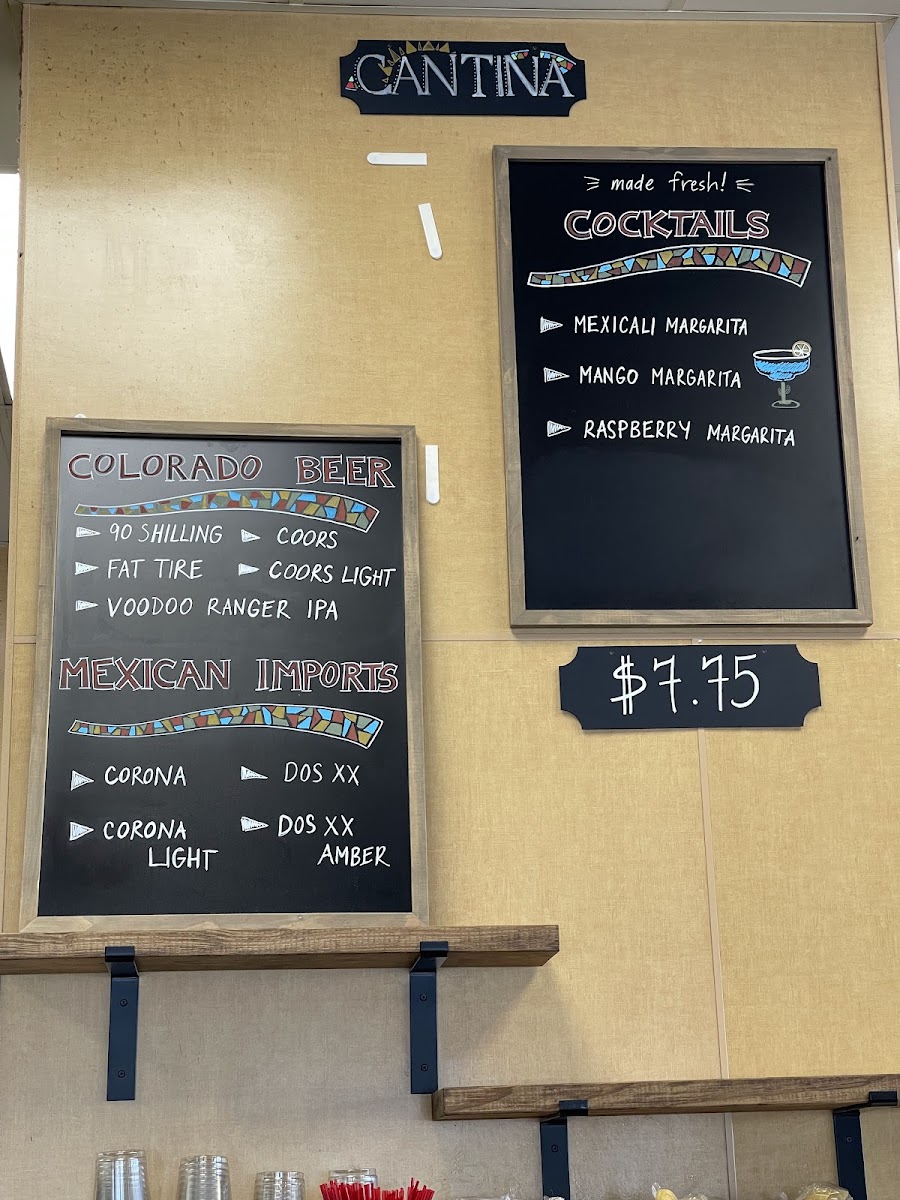 CANTINA
made fresh!
COCKTAILS
MEXICALI MARGARITA
MANGO MARGARITA
RASPBERRY MARGARITA
$7.75
COLORADO BEER
90 SHILLING
COORS
FAT TIRE
COORS LIGHT
VOODOO RANGER IPA
MEXICAN IMPORTS
CORONA
DOS XX
CORONA
LIGHT
DOS XX
AMBER